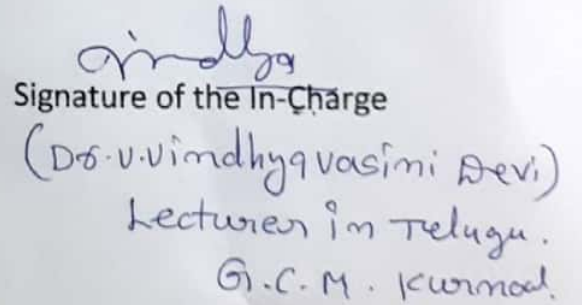 Vindhya
Signature of the In-Charge
(Dr.V.Vindhyavasini Devi)
Lecturer in Telugu.
G.C.M. Kurnool.